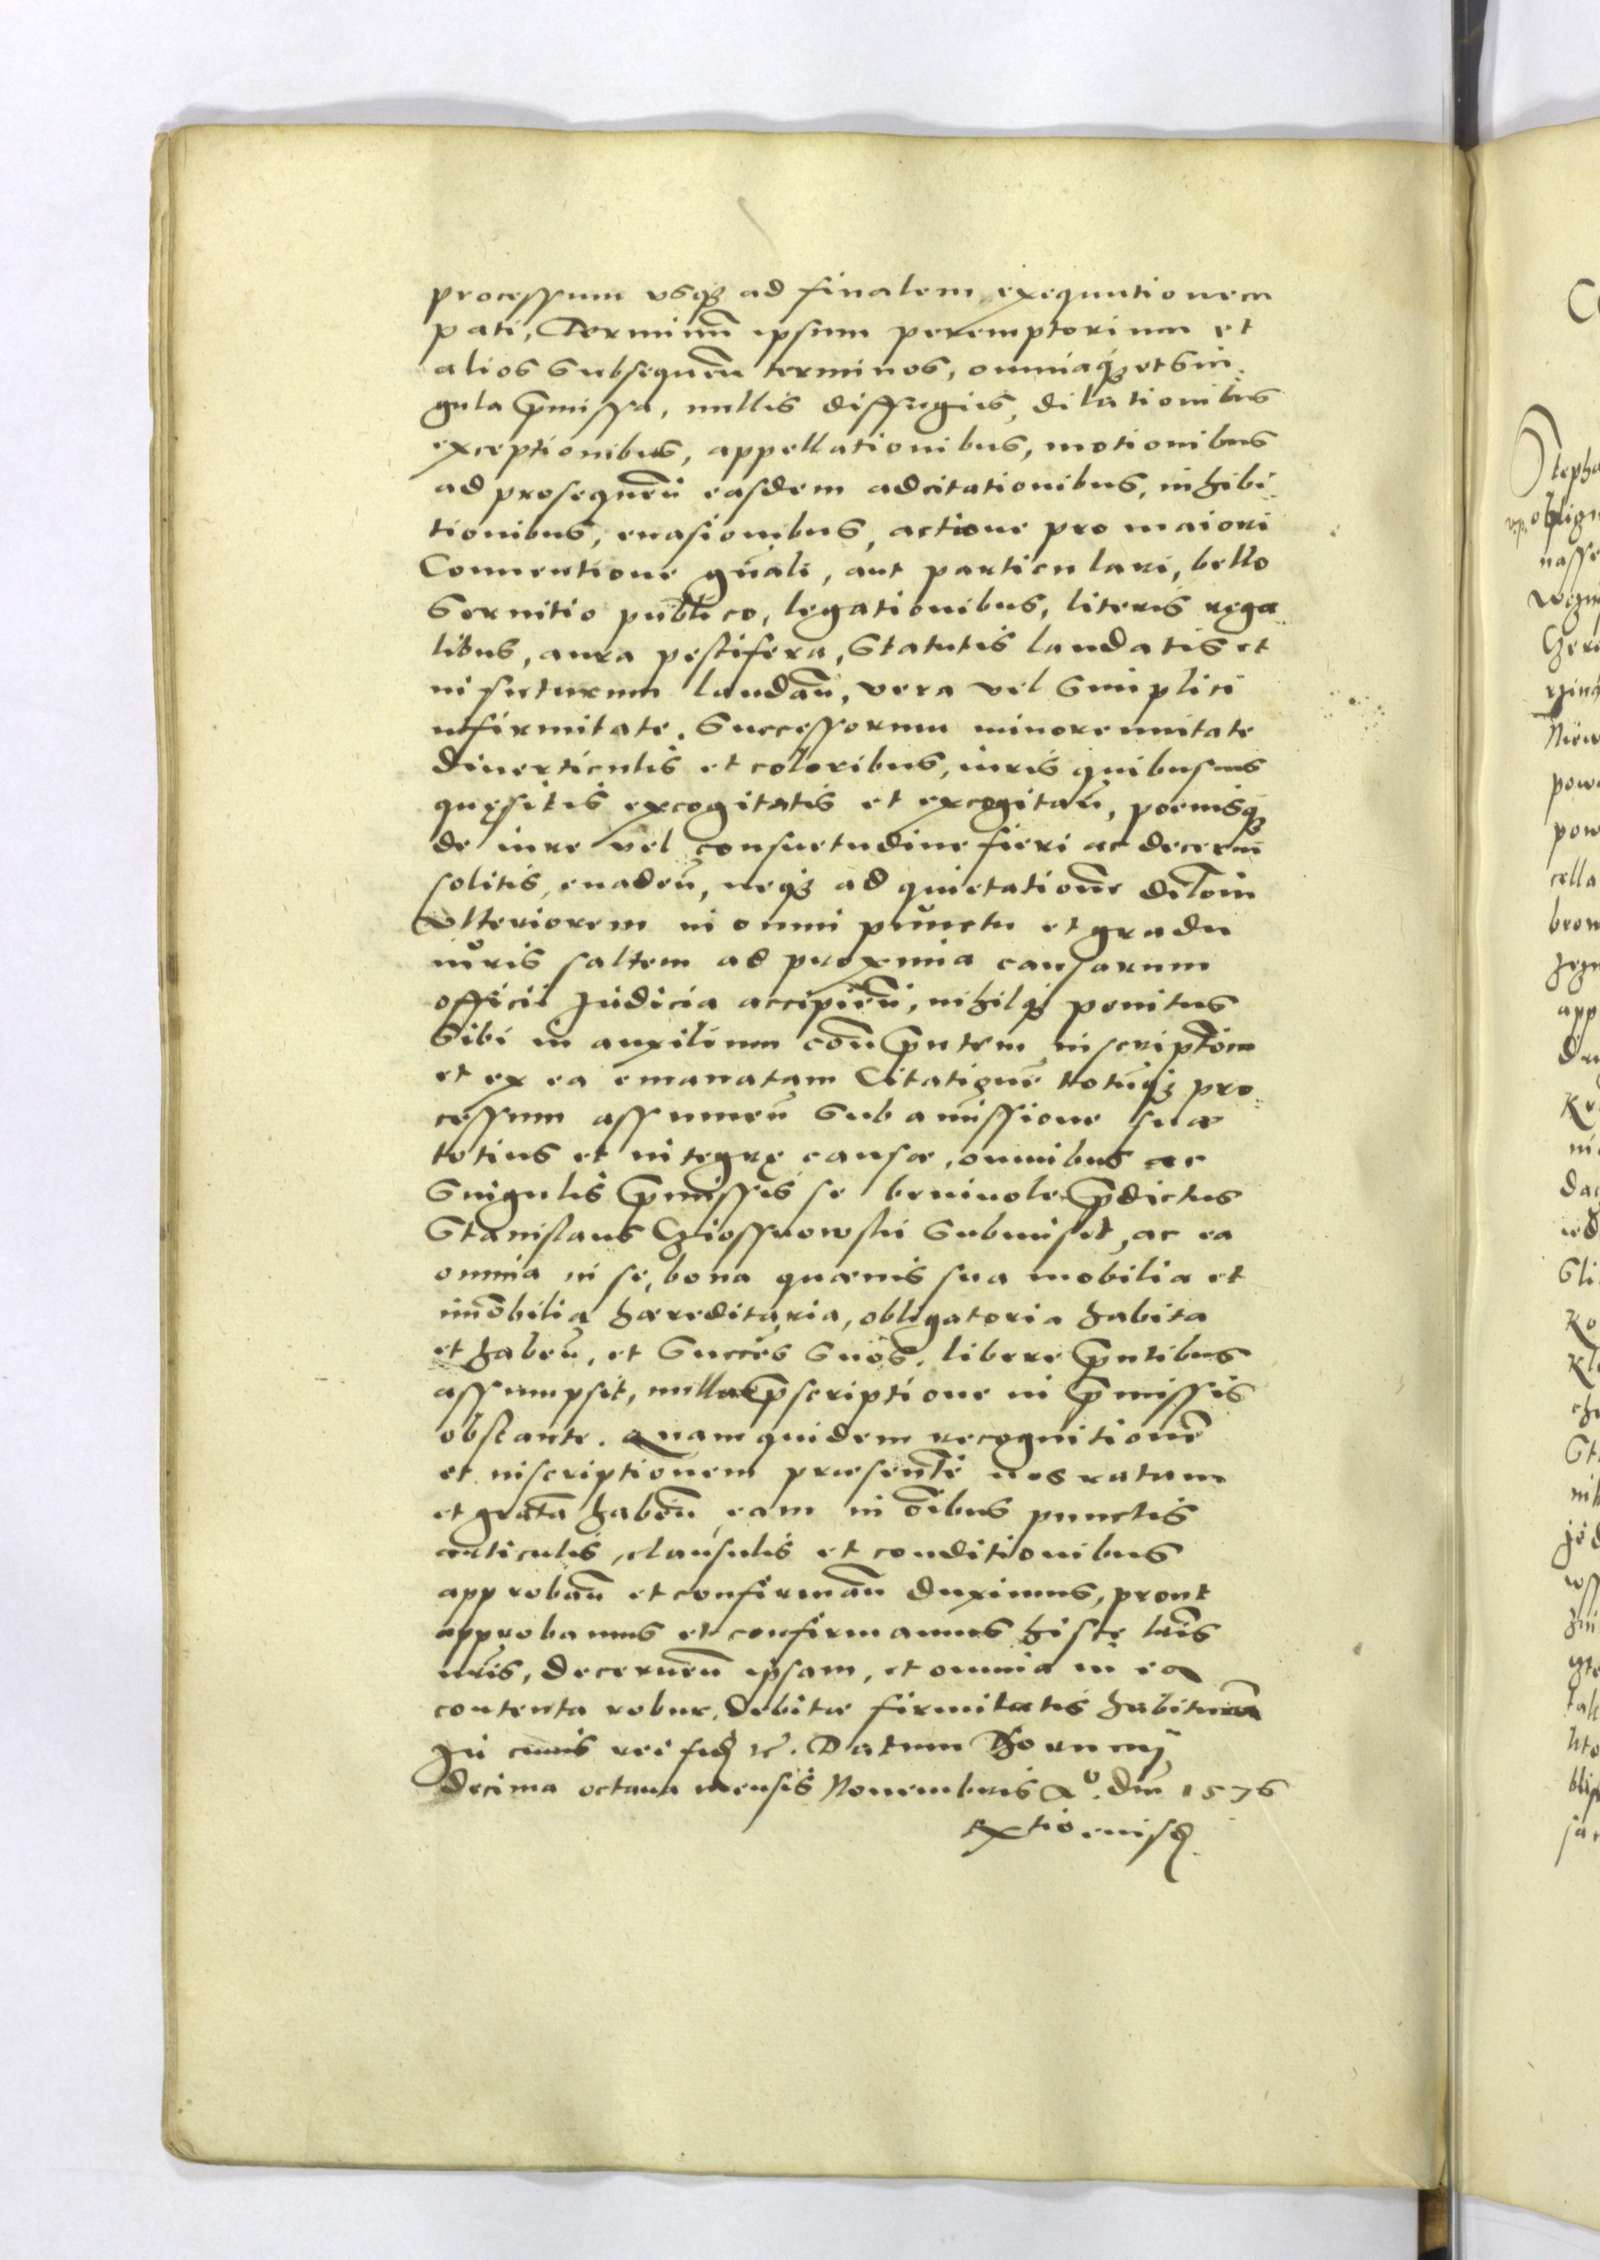 processum vsq3 ad finalem exequutionem
pati, Terminũ ipsum peremptorium et
alios subsequeñ terminos, omniaq3 et sin
gula p̃missa, nullis diffugiis, dilationibus
exceptionibus, appellationibus, motionibus
ad prosequeñ easdem adcitationibus, inhibi
tionibus, euasionibus, actione pro maiori
Conuentione gñali, aut particulari, bello
seruitio publico, legationibus, literis rega
libus, aura pestifera, statutis laudatis et
in futurum laudañ, vera vel simplici
infirmitate, Successorum minorennitate
diuerticulis et coloribus, iuris quibusuis
quęsitis excogitatis et excogitañ, poenisq3
de iure vel consuetudine fieri ac decerni
solitis, euadeñ, neq3 ad quietationẽ dil̃oin
vlteriorem in omni punctu et gradu
iuris saltem ad proxima causarum
officii Judicia accipieñ, nihilq3 penitus
sibi in auxilium coñ p̃ntem inscriptõem
et ex ea emanatam Citationẽ totũq3 pro
cessum assumeñ sub amissione suæ
totius et integrę causæ, omnibus ac
singulis p̃missis se beniuole p̃dictus
Stanislaus submisit, ac ea
omnia in se, bona quæuis sua mobilia et
imõbilia hæreditaria, obligatoria habita
et habeñ, et Succẽs suos, libere p̃ntibus
assumpsit, nulla p̃scriptione in p̃missis
obstante. Quam quidem recognitionẽ
et inscriptionem præsentẽ nos ratam
et gratã habeñ, eam in õibus punctis
articulis, clausulis et conditionibus
approbañ et confirmañ duximus, prout
approbamus et confirmamus hisce lr̃is
nr̃is, decerneñ ipsam, et omnia in ea
contenta robur debitæ firmitatis habiturã
In cuius rei fid. &c. Datum Thorunij
decima octaua mensis Nouembris Aº. dñi 1576